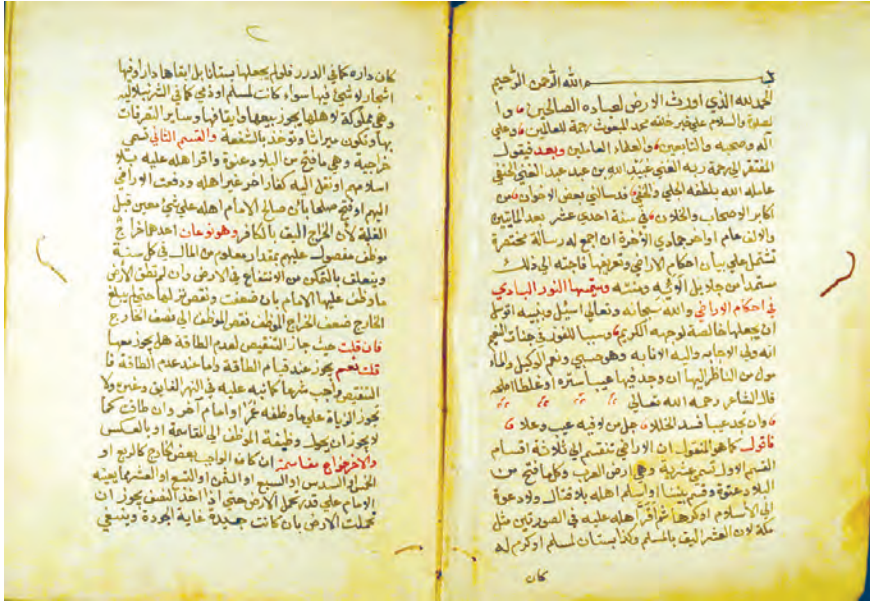 بسم الله الرحمن الرحيم
الحمد لله الذي اورث الارض لعباده الصالحين وا
لصلاة والسلام علي خير خلقه محمد المبعوث رحمة للعالمين وعلي
آله وصحبه والتابعين والعلماء العاملين وبعد فيقول
المفتقر الي رحمة ربه الغني عبيد الله بن عبد الغني الحنفي
عامله الله بلطفه الجلي والخفي قد سالني بعض الاخوان من
اكابر الاصحاب والخلان في سنة احدي عشر بعد المايتين
والالف عام اواخر جمادي الآخرة ان اجمع له رسالة مختصرة
تشتمل علي بيان احكام الاراضي وتعريفها فاجبته الي ذلك
مستمدا من جلايل ومننه وسميتها النور البادي
في احكام الاراضي والله سبحانه وتعالي اسئل وبنبيه اتوسل
ان يجعلها خالصة لوجهه الكريم وسببا للفوز في جنات النعيم
انه ولي الاجابه واليه الانابه وهو حسبي ونعم الوكيل والما
مول من الناظر اليها ان وجد فيها عيبا ستره او غلطا اصلحه
قال الشاعر رحمه الله تعالي
وان تجد عيبا فسد الخللا جل من لا فيه عيب وعلا
فاقول كما هو المنقول ان الاراضي تنقسم الي ثلاثة اقسام
القسم الاول تسمي عشرية وهي ارض العرب وكلما فتح من
البلاد عنوة وقسم بيننا او اسلم اهله بلا قتال ولا دعوة
الي الاسلام او كرها ثم اقر اهله عليه في الصورتين مثل
مكة لان العشر اليق بالمسلم وكذا بستان لمسلم او كرم له
كان
كان داره كما في الدرر فلو لم يجعلها بستانا بل ابقاها دارا وفيها
اشجار لا شئ فيها سواء كانت لمسلم او ذمي كما في الشرنبلاليه
وهي مملوكة لاهلها يجوز بيعها وايقافها وساير التصرفات
بها وتكون ميراثا وتوخذ بالشفعة والقسم الثاني تسمي
خراجية وهي ما فتح من البلاد عنوة واقر اهله عليه بلا
اسلامهم او نقل اليه كفار اخر غير اهله ودفعت الاراضي
اليهم او فتح صلحا بان صالح الامام اهله علي شئ معين قبل
الغلبة لأن الخراج اليق بالكافر وهو نوعان احدهما خراج
موظف مفصول عليهم بمقدار معلوم من المال في كل سنة
ويتعلق بالتمكن من الانتفاع في الارض وان لم تطق الأرض
ما وظف عليها الامام بان ضعفت ونقص نزلها حتي لم يبلغ
الخارج ضعف الخراج الموظف نقص الموظف الي نصف الخارج
فان قلت حيث جاز التنقيص لعدم الطاقة هل يجوز معها
قلت نعم يجوز عند قيام الطاقة واما عند عدم الطاقة فا
التنقيص واجب شرعا كما نبه عليه في النهر الفايق وغيره ولا
تجوز الزيادة علي ما وظفه عمر او امام آخر وان طاقت كما
لا يجوز ان يحول وظيفة الموظف الي القاسمة او بالعكس
والاخر خراج مقاسمة ان كان الواجب بعض الخارج كالربع او
الخمس او السدس او السبع او الثمن او التسع او العشر مما يعينه
الامام علي قدر تحمل الارض حتي اذا اخذ النصف يجوز ان
تحملت الارض بان كانت جيدة غاية الجودة وينبغي